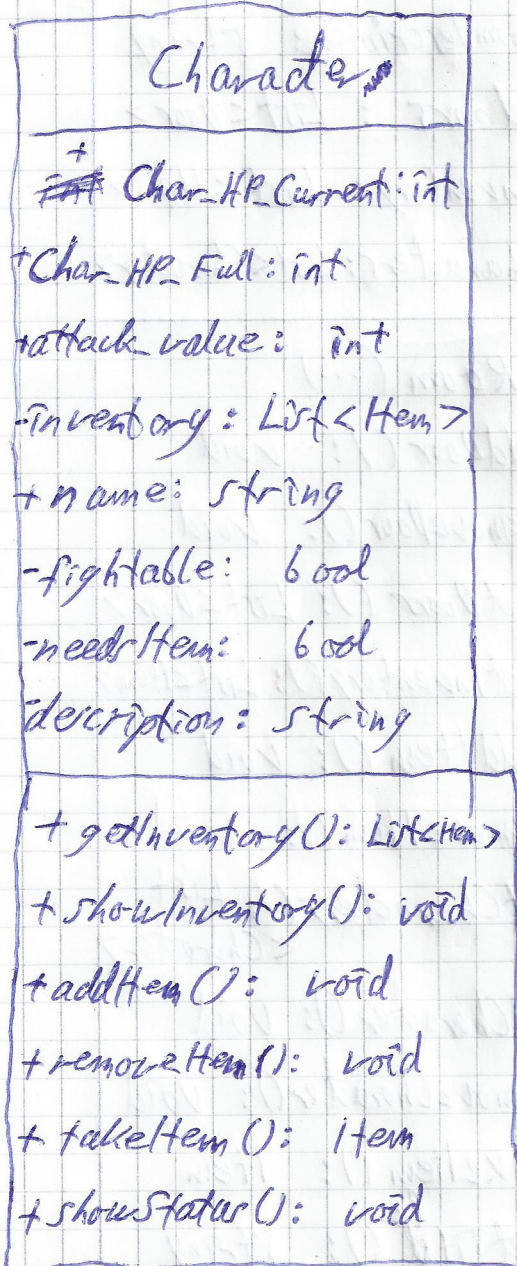 Character
+
Char_HP_Current: int
+Char_HP_Full: int
+attack_value: int
-inventory: List<Item>
+name: string
-fightable: bool
-needsItem: bool
-description: string
+getInventory(): List<Item>
+showInventory(): void
+addItem(): void
+removeItem(): void
+takeItem(): Item
+showStatus(): void